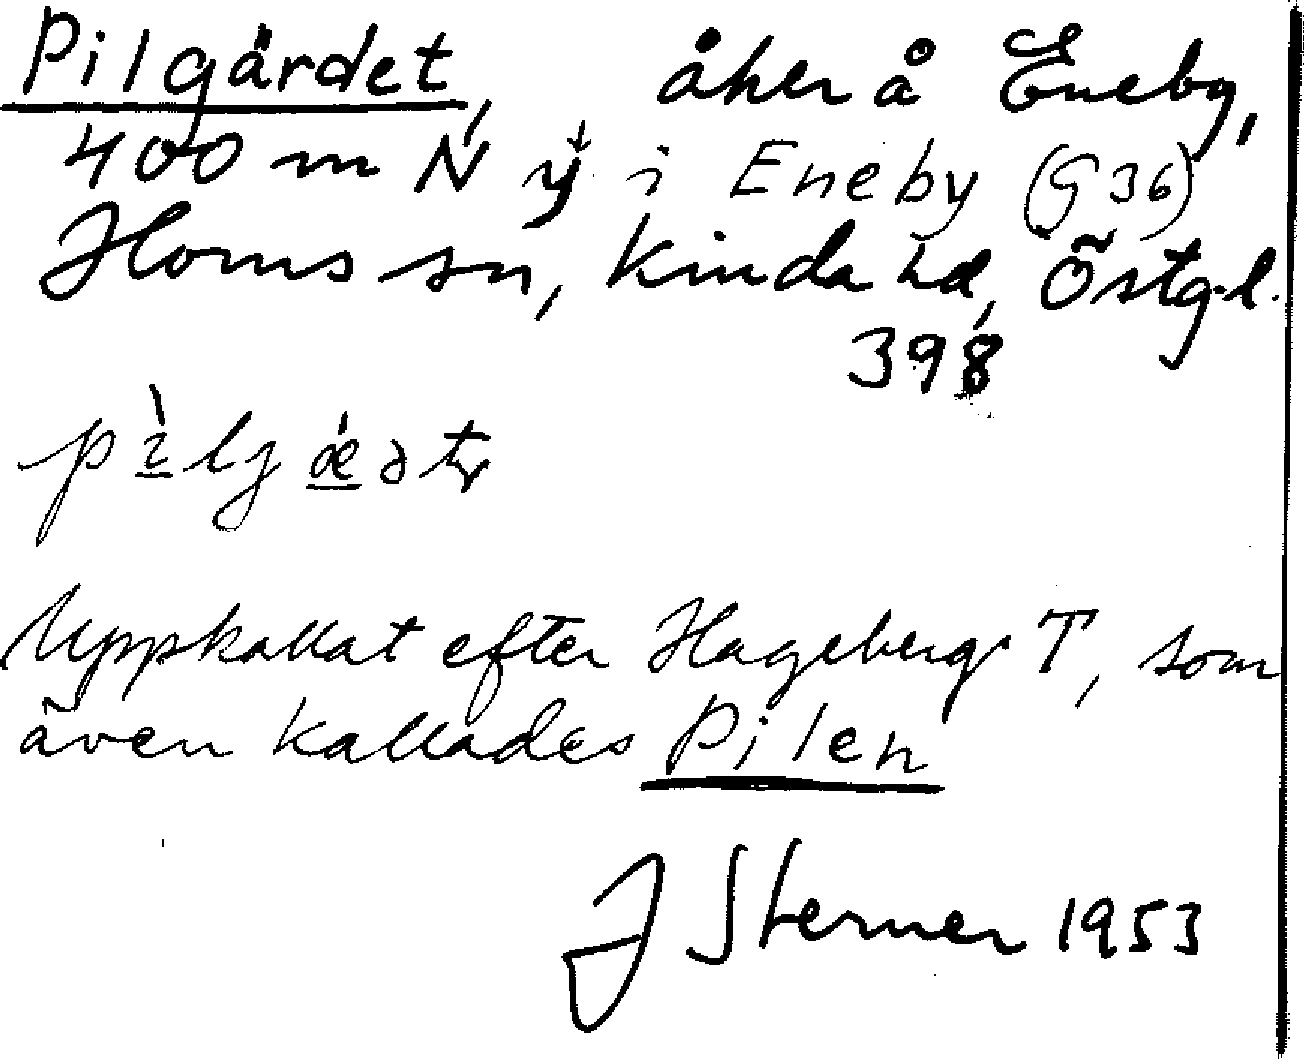 Pilgärdet, åker å Eneby,
400 m N y i Eneby (G 36)
Horns sn, Kinda hd, Östg.l.
398
Uppkallat efter Hageberg T, som
även kallades Pilen
J Sterner 1953